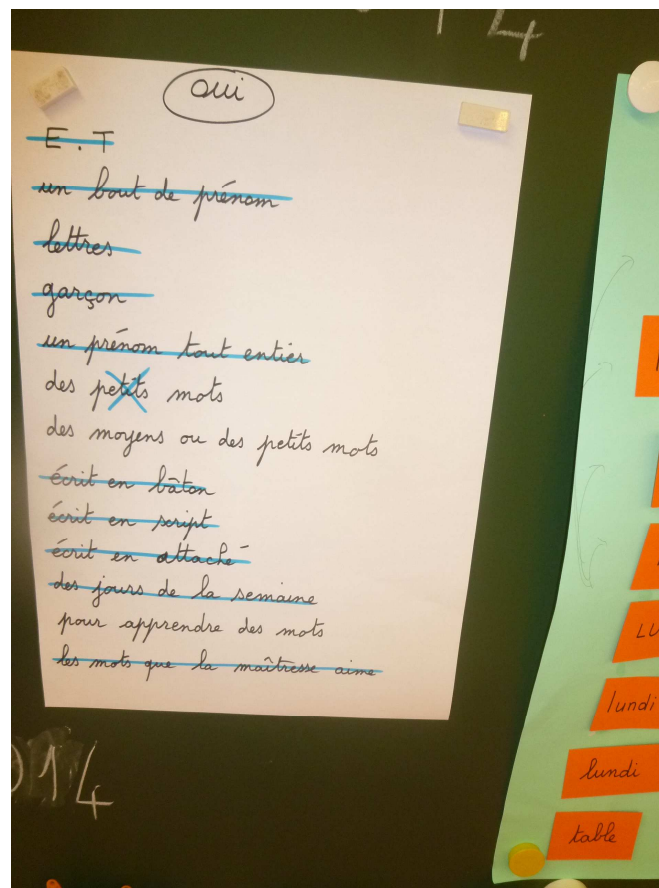 14
oui
E.T
un bout de prénom
lettres
garçon
un prénom tout entier
des petits mots
des moyens ou des petits mots
écrit en bâton
écrit en script
écrit en attaché
des jours de la semaine
pour apprendre des mots
les mots que la maîtresse aime
014
LU
lundi
lundi
table